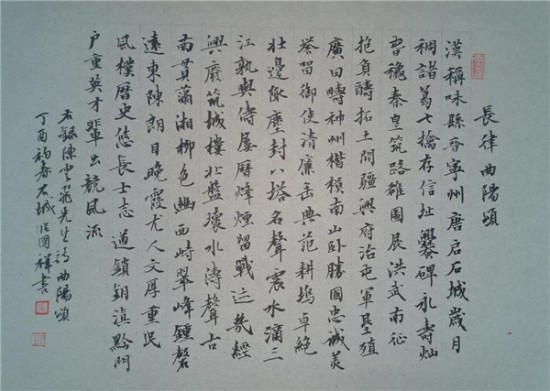 長律 曲陽頌
漢稱味縣晉寧州唐啟石城歲月
稠諸葛七擒存信址爨碑永壽燦
曾穐秦皇筑路雄圖展洪武南征
抱負躊拓土開疆興府治屯軍墾殖
廣田疇神州楷模南山卧勝國忠誠美
譽留御使清廉岳典范耕塢卓絶
壯邊陬塵封八塔名聲震水滴三
江孰與儔屢歷烽煙留戰迹幾經
興廢筑城樓北盤環水濤聲古
南貫瀟湘柳色幽西峙翠峰鍾磬
遠東陳朗目晚霞尤人文厚重民
風樸歷史悠長士志遒鎖鑰滇黔門
户重英才輩出競風流
右録陳雲飛先生詩曲陽頌
丁酉初春石城張國祥書